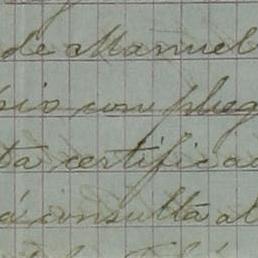 de Manuel
pio con pleg
ta certificad
á consulta al